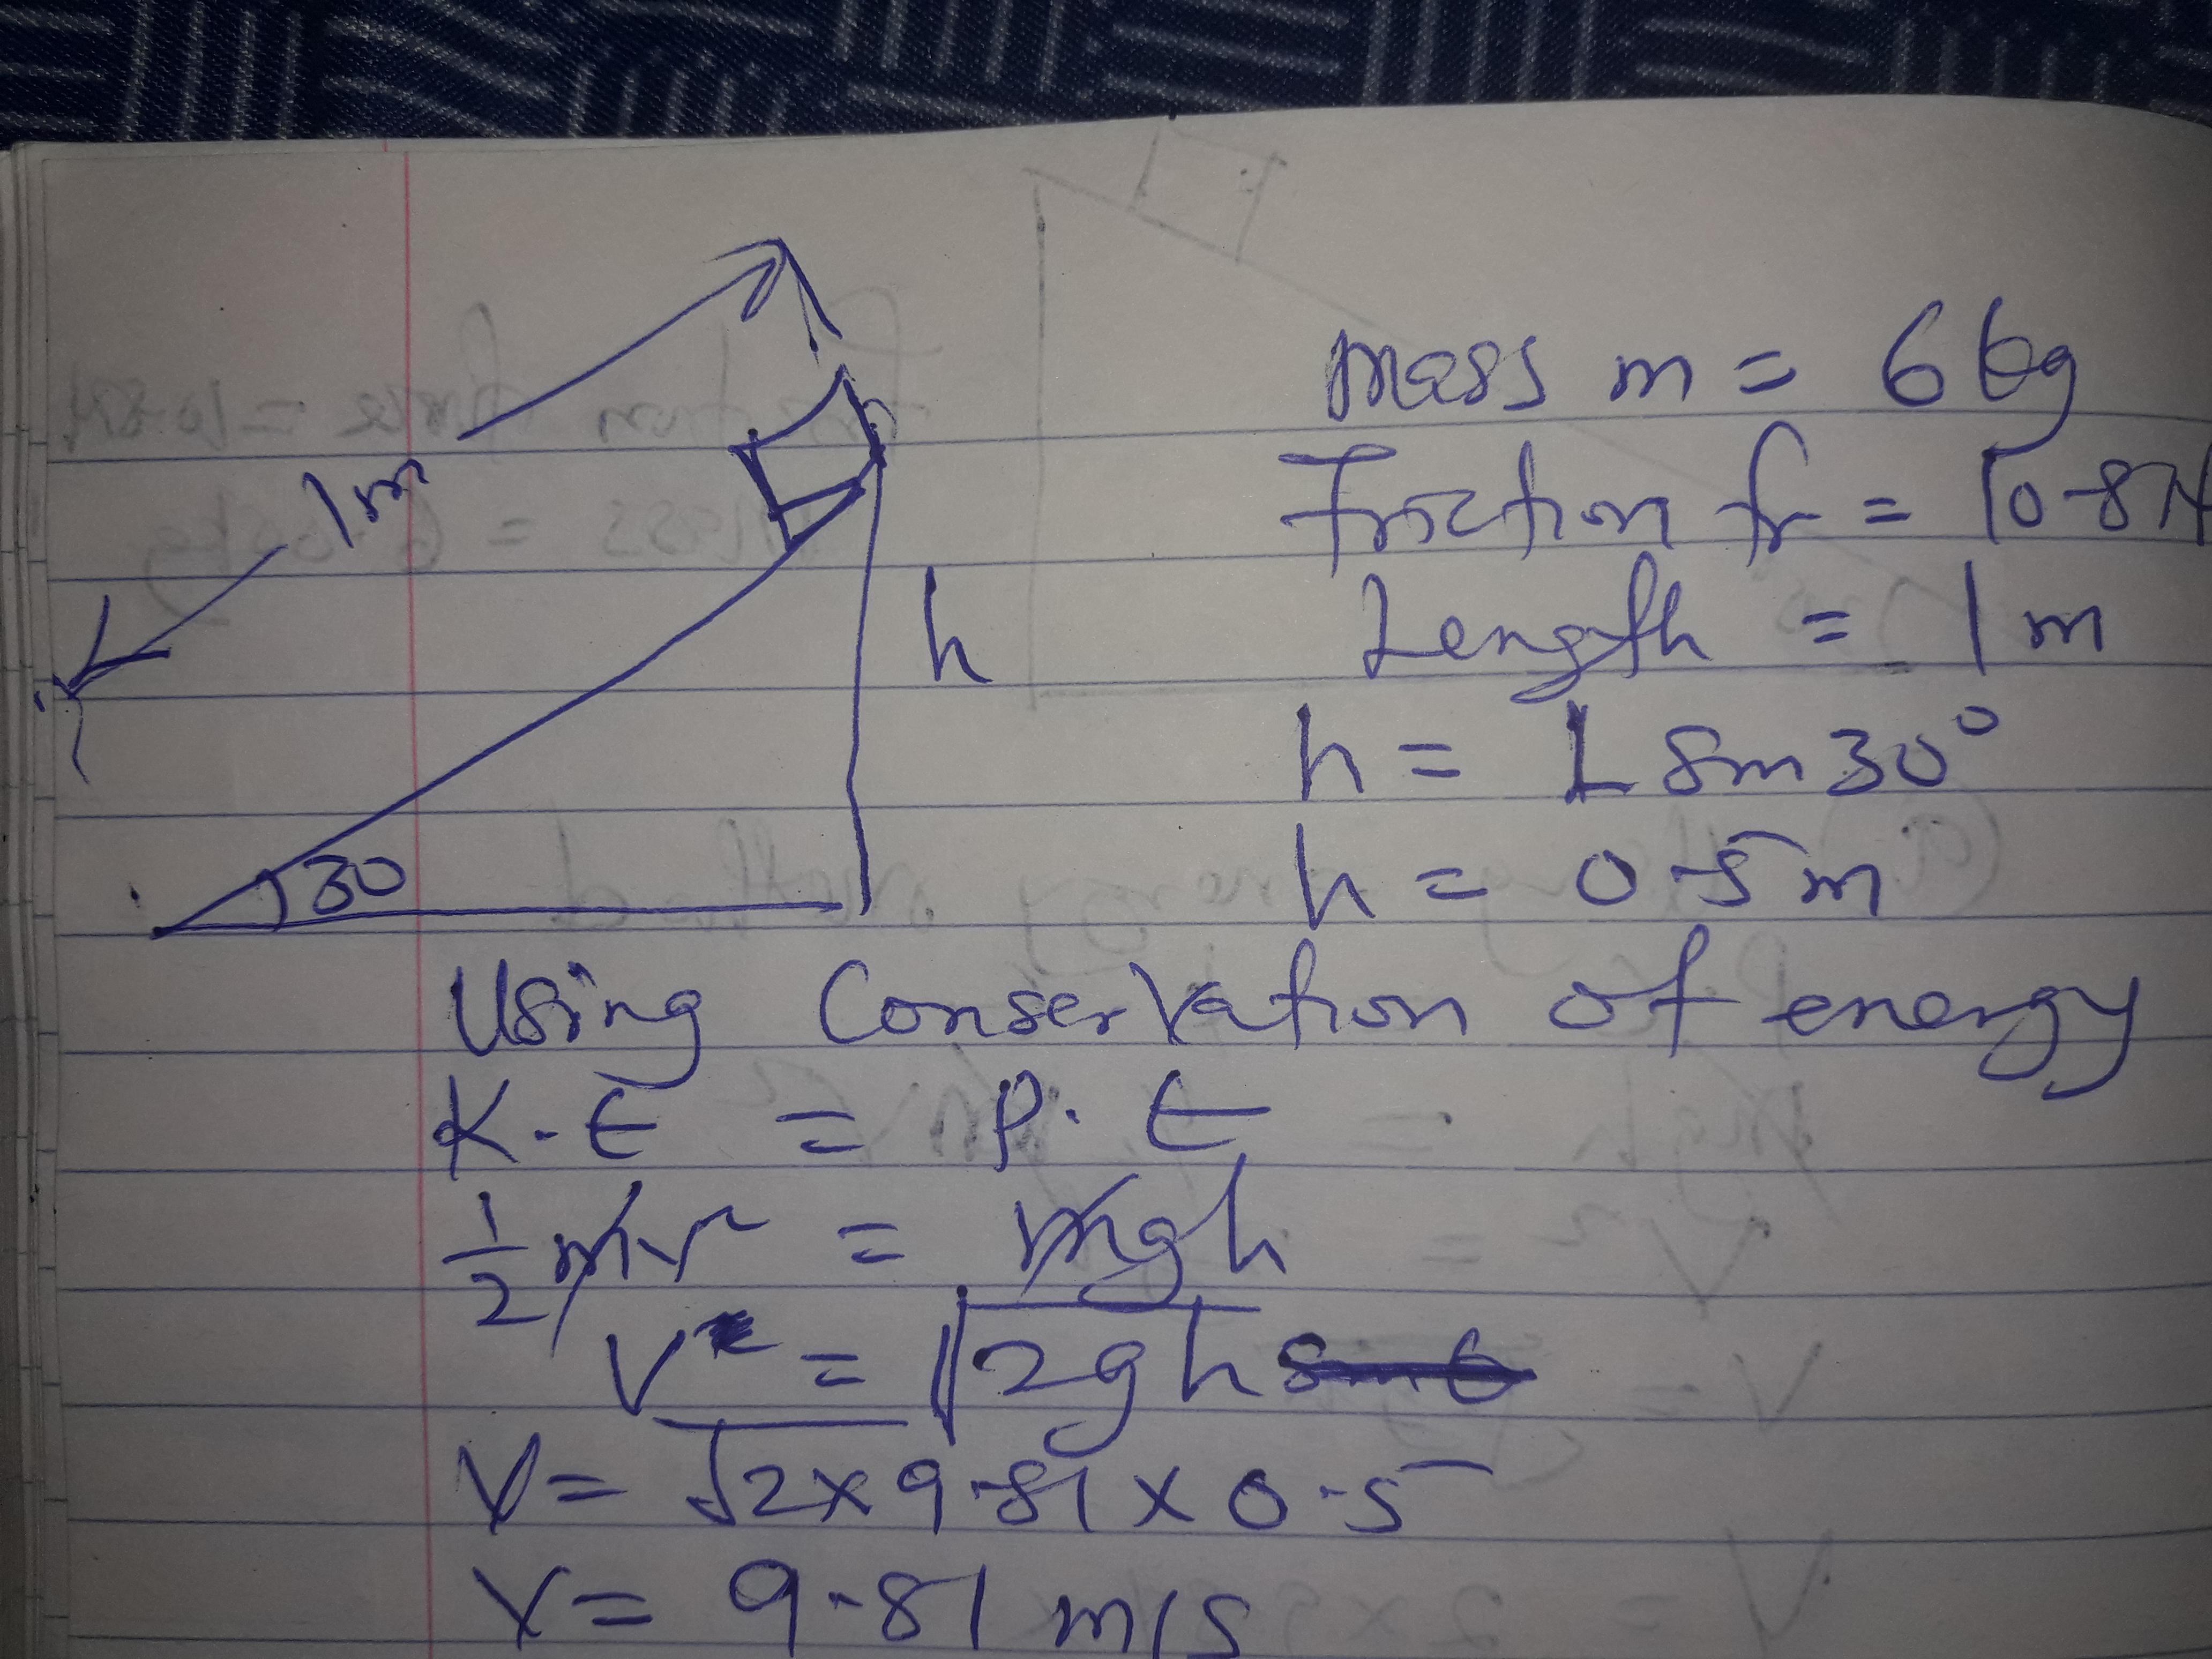 1m
h
30
mass m = 6 kg
Friction fr = 10.8N
Length = 1 m
h = L sin 30°
h = 0.5 m
Using Conservation of energy
K.E = P.E
1/2 mv² = mgh
V = √2gh
V = √2×9.81×0.5
V = 9.81 m/s